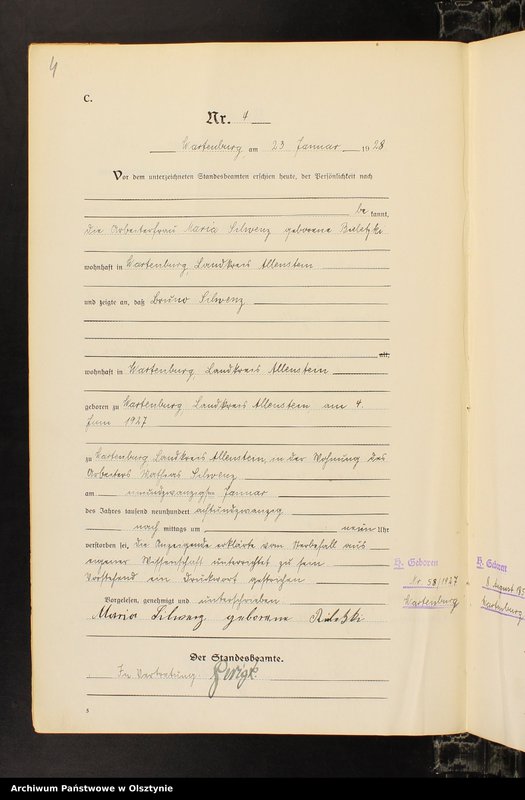 4
C.
Nr. 4
Wartenburg am 23 Januar 1928
Vor dem unterzeichneten Standesbeamten erschien heute, der Persönlichkeit nach
be kannt,
die Arbeiterfrau Maria Silwenz geborene
wohnhaft in Wartenburg, Landkreis Allenstein
und zeigte an, daß Bruno Silwenz
alt,
wohnhaft in Wartenburg, Landkreis Allenstein
geboren zu Wartenburg Landkreis Allenstein am 4.
Juni 1927
zu Wartenburg Landkreis Allenstein, in der Wohnung des
Arbeiters Mathias Silwenz
am Januar
des Jahres tausend neunhundert achtundzwanzig
nach mittags um neun Uhr
verstorben sei. Die Anzeigende erklärte vom Sterbefall aus
eigener Wissenschaft unterrichtet zu sein
Vorstehend ein Druckwort gestrichen
Vorgelesen, genehmigt und unterschrieben
Maria Silwenz geborene
Der Standesbeamte.
In Vertretung
H. Geboren
Nr. 58/1927
Wartenburg
8 August
Wartenburg
Archiwum Państwowe w Olsztynie